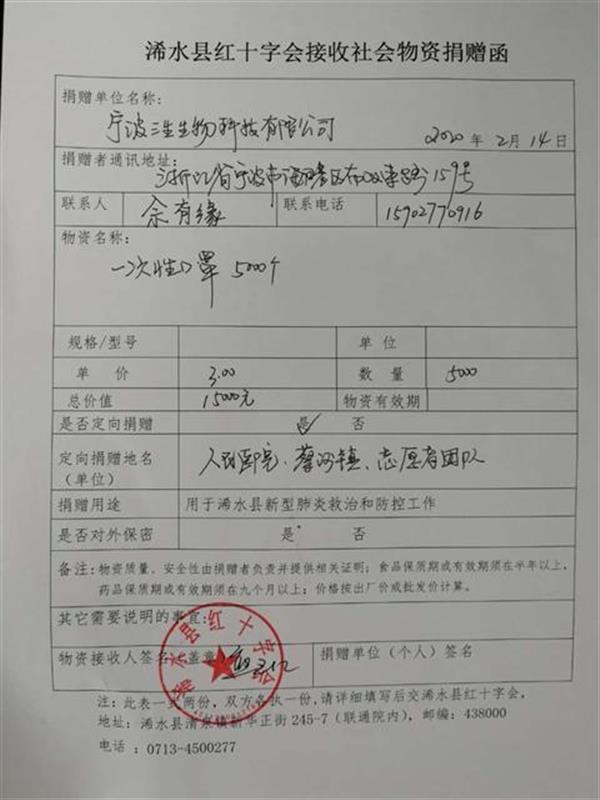 浠水县红十字会接收社会物资捐赠函
捐赠单位名称:
宁波三生生物科技有限公司
2020 年 2 月 14 日
捐赠者通讯地址:
浙江省宁波市 159号
联系人 余有缘 联系电话 15902770916
物资名称:
一次性口罩 5000个
规格/型号 单 位
单 价 3.00 数 量 5000
总价值 15000元 物资有效期
是否定向捐赠 是✓ 否
定向捐赠地名 人民医院、蔡河镇、志愿者团队
(单位)
捐赠用途 用于浠水县新型肺炎救治和防控工作
是否对外保密 是 否
备注: 物资质量、安全性由捐赠者负责并提供相关证明; 食品保质期或有效期须在半年以上,
药品保质期或有效期须在九个月以上; 价格按出厂价或批发价计算。
其它需要说明的事宜:
物资接收人签名(盖章) 捐赠单位(个人)签名
浠水县红十字会
注: 此表一式两份, 双方各执一份, 请详细填写后交浠水县红十字会。
地址: 浠水县清泉镇新华正街 245-7 (联通院内), 邮编: 438000
电话 : 0713-4500277